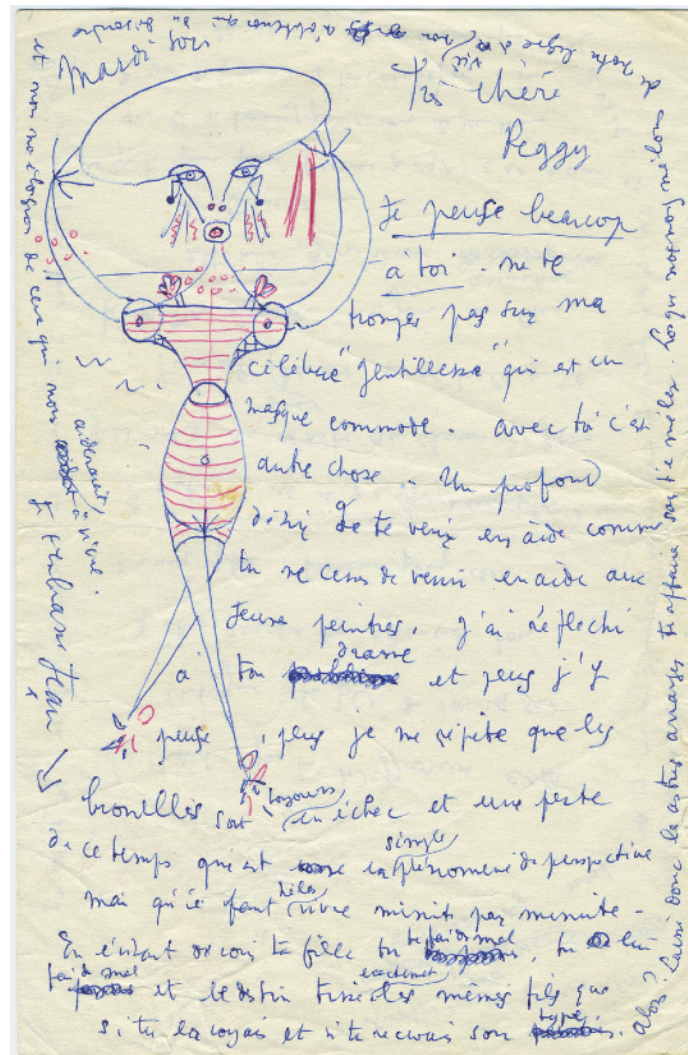 Mardi soir
Très chère
Peggy
Je pense beaucoup
à toi. ne te
trompes pas sur ma
célèbre "gentillesse" qui est un
masque commode. avec toi c'est
autre chose. Un profond
désir de te venir en aide comme
tu ne cesses de venir en aide aux
jeunes peintres. J'ai réfléchi
à ton drame et plus j'y
pense, plus je me répète que les
brouilles sont toujours un échec et une perte
de ce temps qui est un simple phénomène de perspective
mais qu'il faut hélas vivre minute par minute.
En évitant de voir ta fille tu te fais du mal, tu lui
fais du mal et le destin tire les mêmes fils que
si tu la voyais et si tu recevais son type.
alors? Laisse donc les astres arranger tes affaires sans t'en mêler. Lorsque nous nous mêlons
de notre ligne de vie, on
et nous nous éloignons de ceux qui nous
aideraient à vivre.
Je t'embrasse
Jean